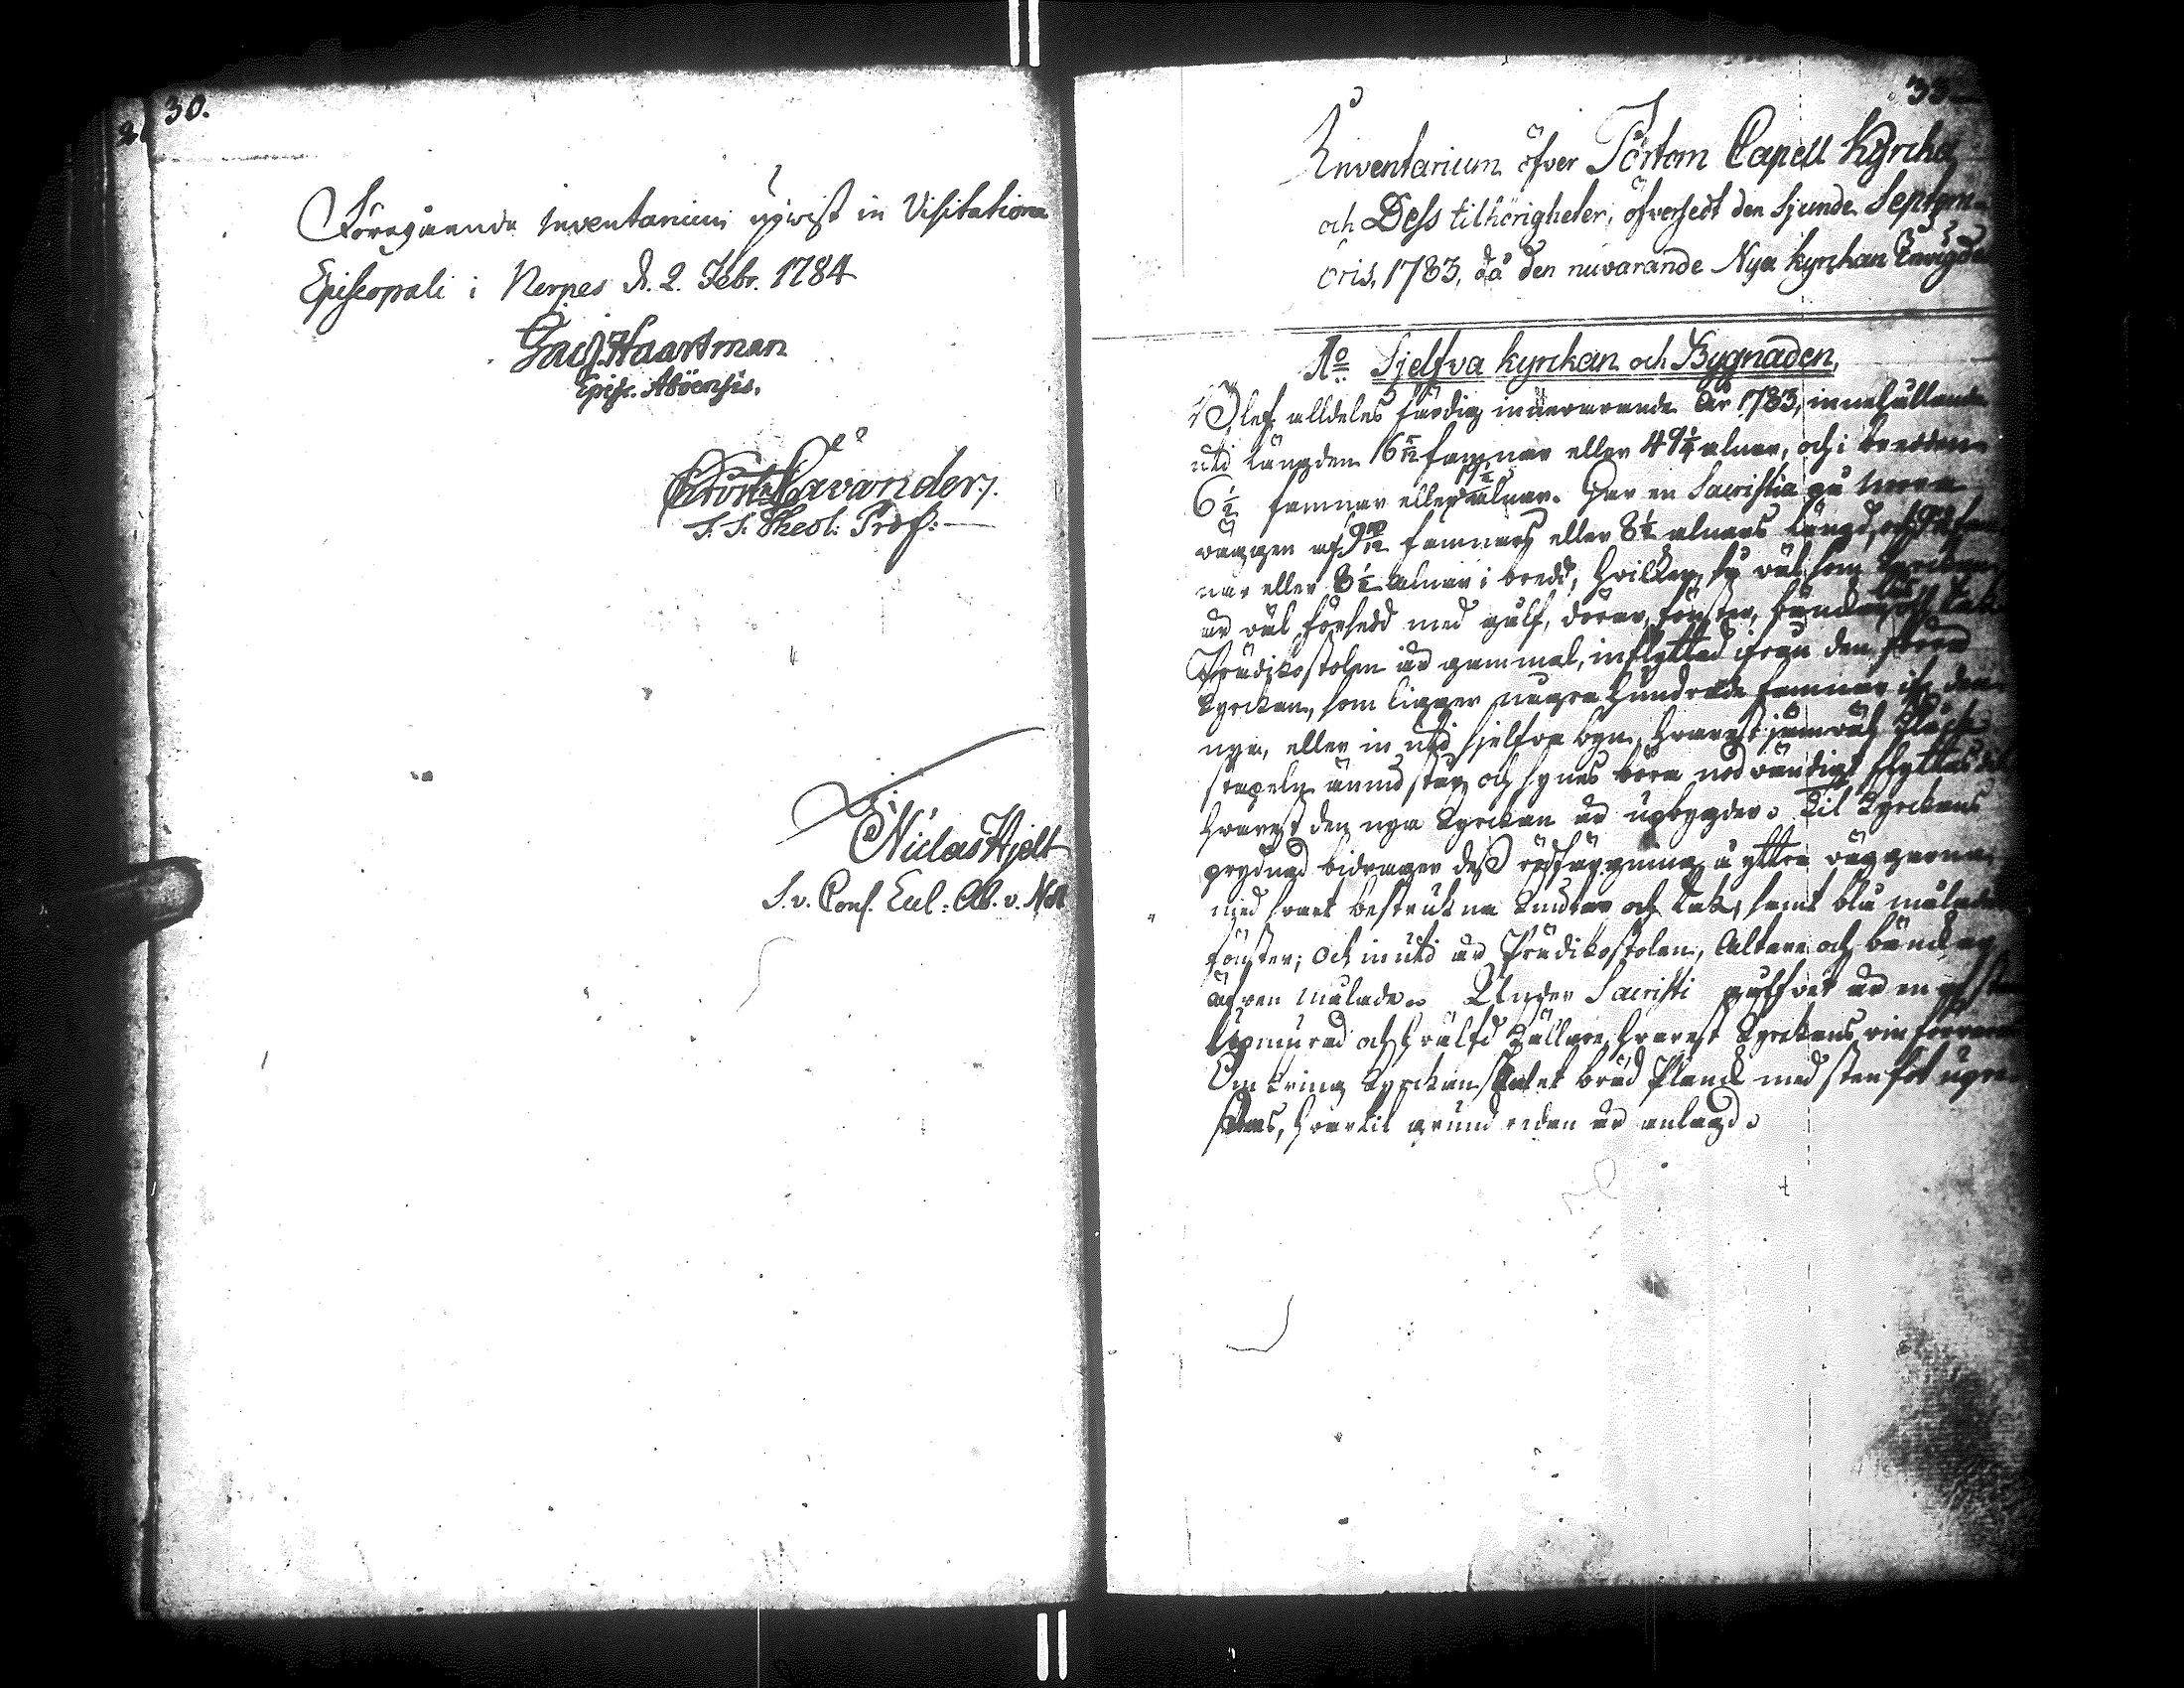 30.
Föregående Inventarium upvist in Visitatione
Episcopali i Nerpes d. 2. Febr. 1784
Jac. Haartman
Episc. Aboënsis.
Lavander.
S. S. Theol. Prof:
Niclas Hjelt
S. v. Cons. Eccl: Ab. v. Not
33
Inventarium öfver Pörtom Capell Kyrcka
och Dess tilhörigheter, öfversedt den Sjunde Septem-
bris, 1783, då den nuvarande Nya kyrckan Invigdes
1o Sjelfva kyrckan och Bygnaden.
Blef alldeles färdig innevarande år 1783, innehållande
uti Längden 16 5/12 famnar eller 49 1/4 alnar, och i bredden
6 1/2 famnar eller 19 1/2 alnar. Har en Sacristia på norra
väggen af famnars eller 8 1/2 alnars Längd, och
nar eller 8 1/2 alnar i bredd, hvilken så väl som kyrckan
är väl försedd med gålf, dörar, fönster, bänckar och tak
Prädikostolen är gammal, inflyttad ifrån den förra
kyrckan, som ligger några hundrade famnar if. den
nya, eller in uti sjelfva byn, hvarest jämväl Klock
stapeln ännu står och synes böra nödvändigt flyttas dit
hvarest den nya kyrckan är upbygder. Til kyrckans
prydnad bidrager dess rödfärgning å yttra väggarna,
med svart bestrukna knutar och tak, samt blå målade
fönster; och inuti är Prädikostolen, Altare och bänckar
äfven målade. Under Sacristi gålfvet är en af sten
upmurad och hvälfd källare, hvarest kyrckans vin förvaras
Omkring kyrckan skal et bräd Planck med stenfot upre-
sas, hvartil grund redan är anlagd.